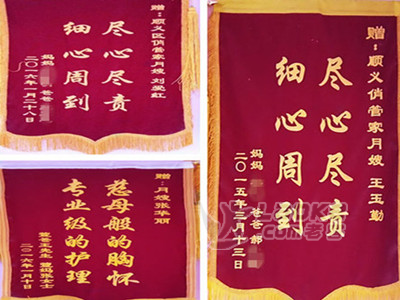 赠：顺义区俏管家月嫂 刘爱红
尽心尽责
细心周到
妈妈 爸爸
二〇一六年一月二十八日
赠：月嫂张华丽
慈母般的胸怀
专业级的护理
二〇一六年一月十日
赠：顺义俏管家月嫂 王玉勤
尽心尽责
细心周到
妈妈 爸爸 郝
二〇一五年三月十三日